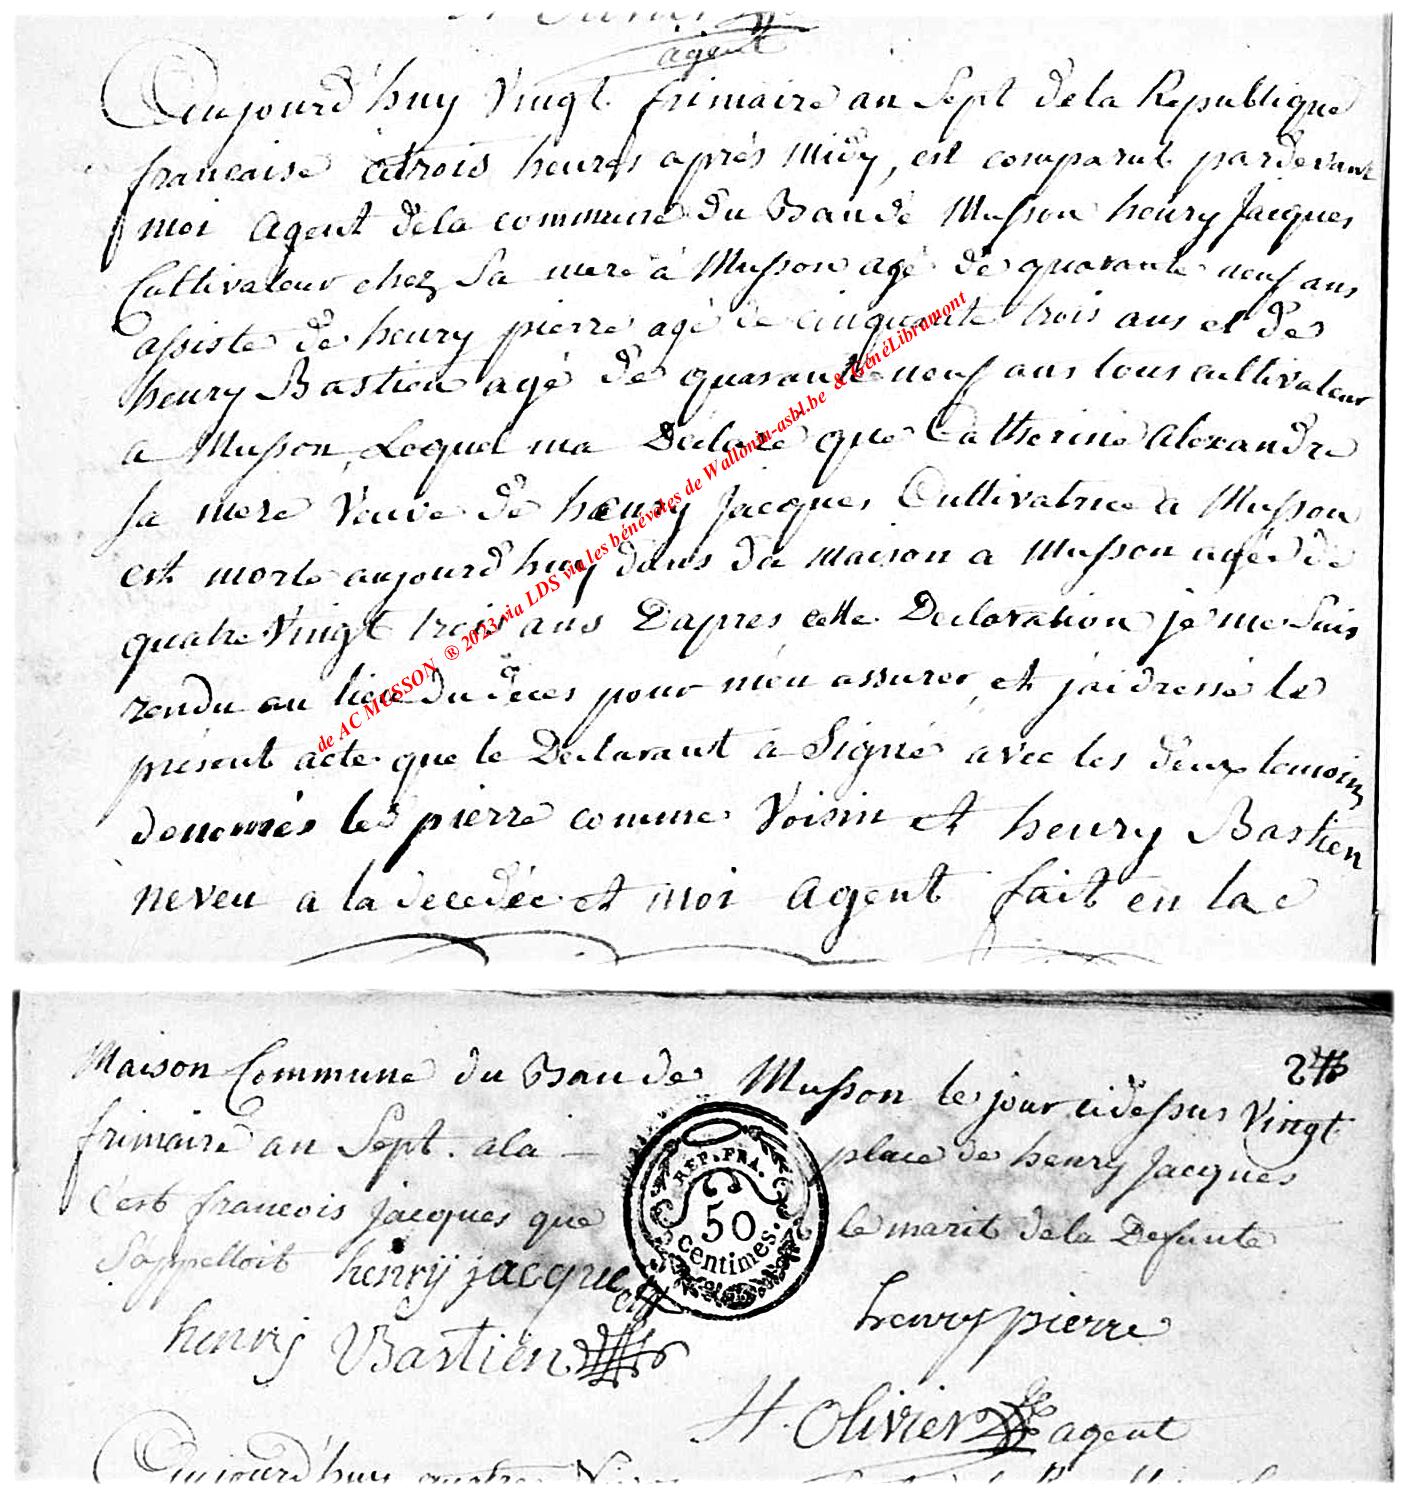 agent
Aujourd'huy Vingt frimaire an Sept dela Republique
francaise a trois heures après midy, est comparut pardevant
moi agent dela commune du Ban de Musson henry Jacques
Cultivateur chez Sa mere à Musson agé de quarante neuf ans
assisté de henry pierre agé de cinquante trois ans et de
henry Bastien agé de quarante neuf ans tous cultivateur
a Musson, Lequel ma Déclaré que Catherine alexandre
Sa mere Veuve de henry Jacques Cultivatrice a Musson
est morte aujourd'huy dans Sa maison a Musson agée de
quatre Vingt trois ans Dapres cette Declaration je me Suis
rendu au lieu du deces pour m'en assurer, et j'ai dressé le
présent acte que le Declarant a Signé avec les deux temoins
denomés le pierre comme Voisin et henry Bastien
neveu a la decedée et moi agent fait en la
Maison Commune du Ban de Musson le jour cidessus Vingt
frimaire an Sept. ala – place de henry Jacques
C'est francois jacques que le marit dela Defunte
S'appelloit henry jacque
henry Bastien henry pierre
H. Olivier agent
Aujourd'huy quatre
de AC MUSSON ® 2023 via LDS via les bénévoles de Wallonia-asbl.be & GénéLibramont
REP. FRA.
50
centimes.